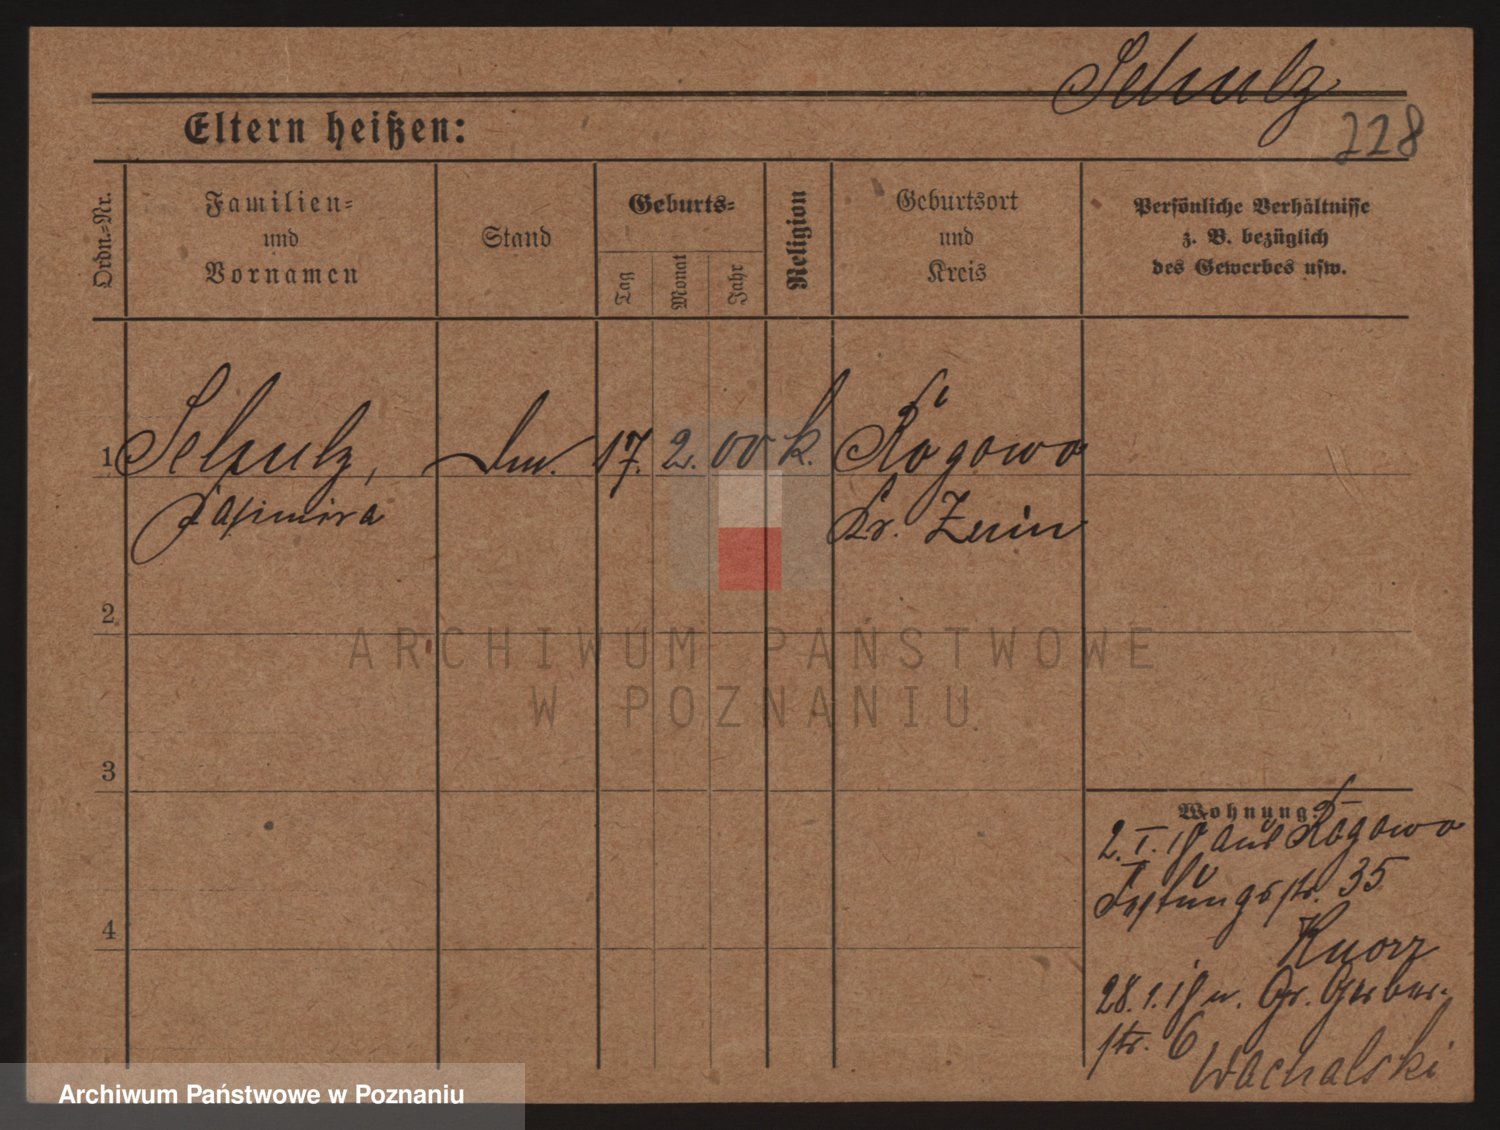 Schulz
228
Eltern heißen:
Ordn.-Nr.
Familien-
und
Vornamen
Stand
Geburts-
Tag
Monat
Jahr
Religion
Geburtsort
und
Kreis
Persönliche Verhältnisse
z. B. bezüglich
des Gewerbes usw.
1 Schulz, 17. 2. 00 k. Rogowo
Kasimira Kr. Znin
2
3
4
Wohnung:
2. I. 19 aus Rogowo
Festungsstr. 35
Knorz
28. 1. 19 n. Gr. Gerber-
str. 6
Wachalski
ARCHIWUM PAŃSTWOWE
W POZNANIU
Archiwum Państwowe w Poznaniu